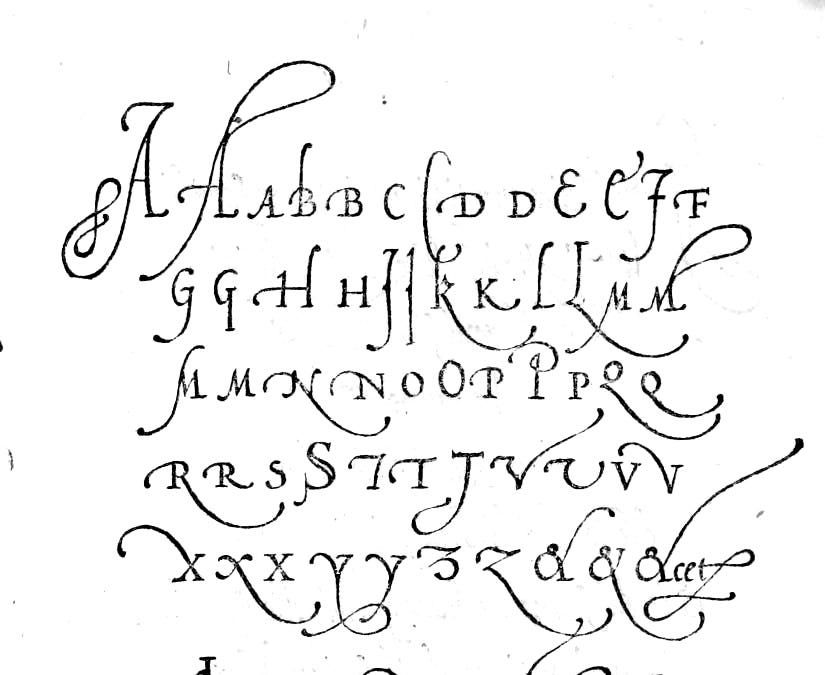 A A A B B C C D D D E E F F
G G H H I I K K L L M M
M M N N O O P P P Q Q
R R S S T T T V V V V
X X X Y Y Z Z & & &cet